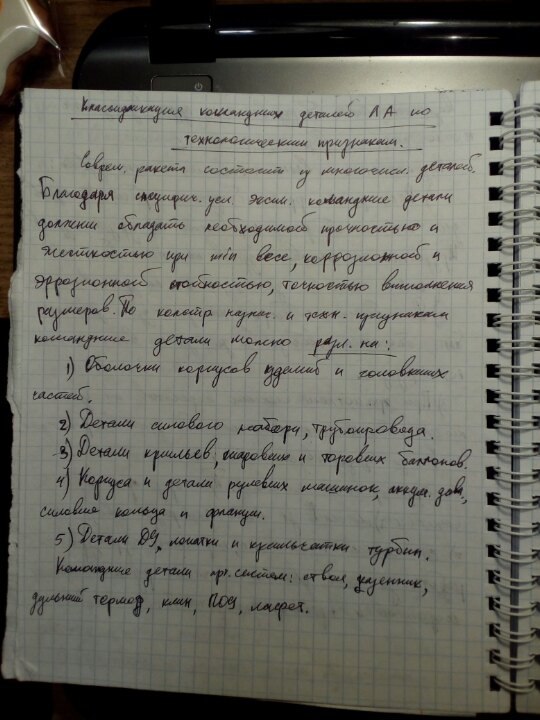 Классификация командних деталей ЛА по
технологическим признакам.
Соврем. ракета состоит из множествен. деталей.
Благодаря специфич. усл. эксп. командние детали
должни обладать необходимой прочностью и
жесткостью при min весе, коррозионной и
эррозионной стойкостью, точностью виполнения
размеров. По констр назнач. и техн. признакам
командние детали можно разд. на:
1) Оболочки корпусов изделий и головних
частей.
2) Детали силового набора, трубопровода.
3) Детали крильев, шарових и торових баллонов.
4) Корпуса и детали рулевих машинок, аккум. дав.,
силовие кольца и фланци.
5) Детали ДУ, лопатки и крильчатки турбин.
Командние детали арт. систем: ствол, казенник,
дульний тормоз, клин, ПОУ, лафет.